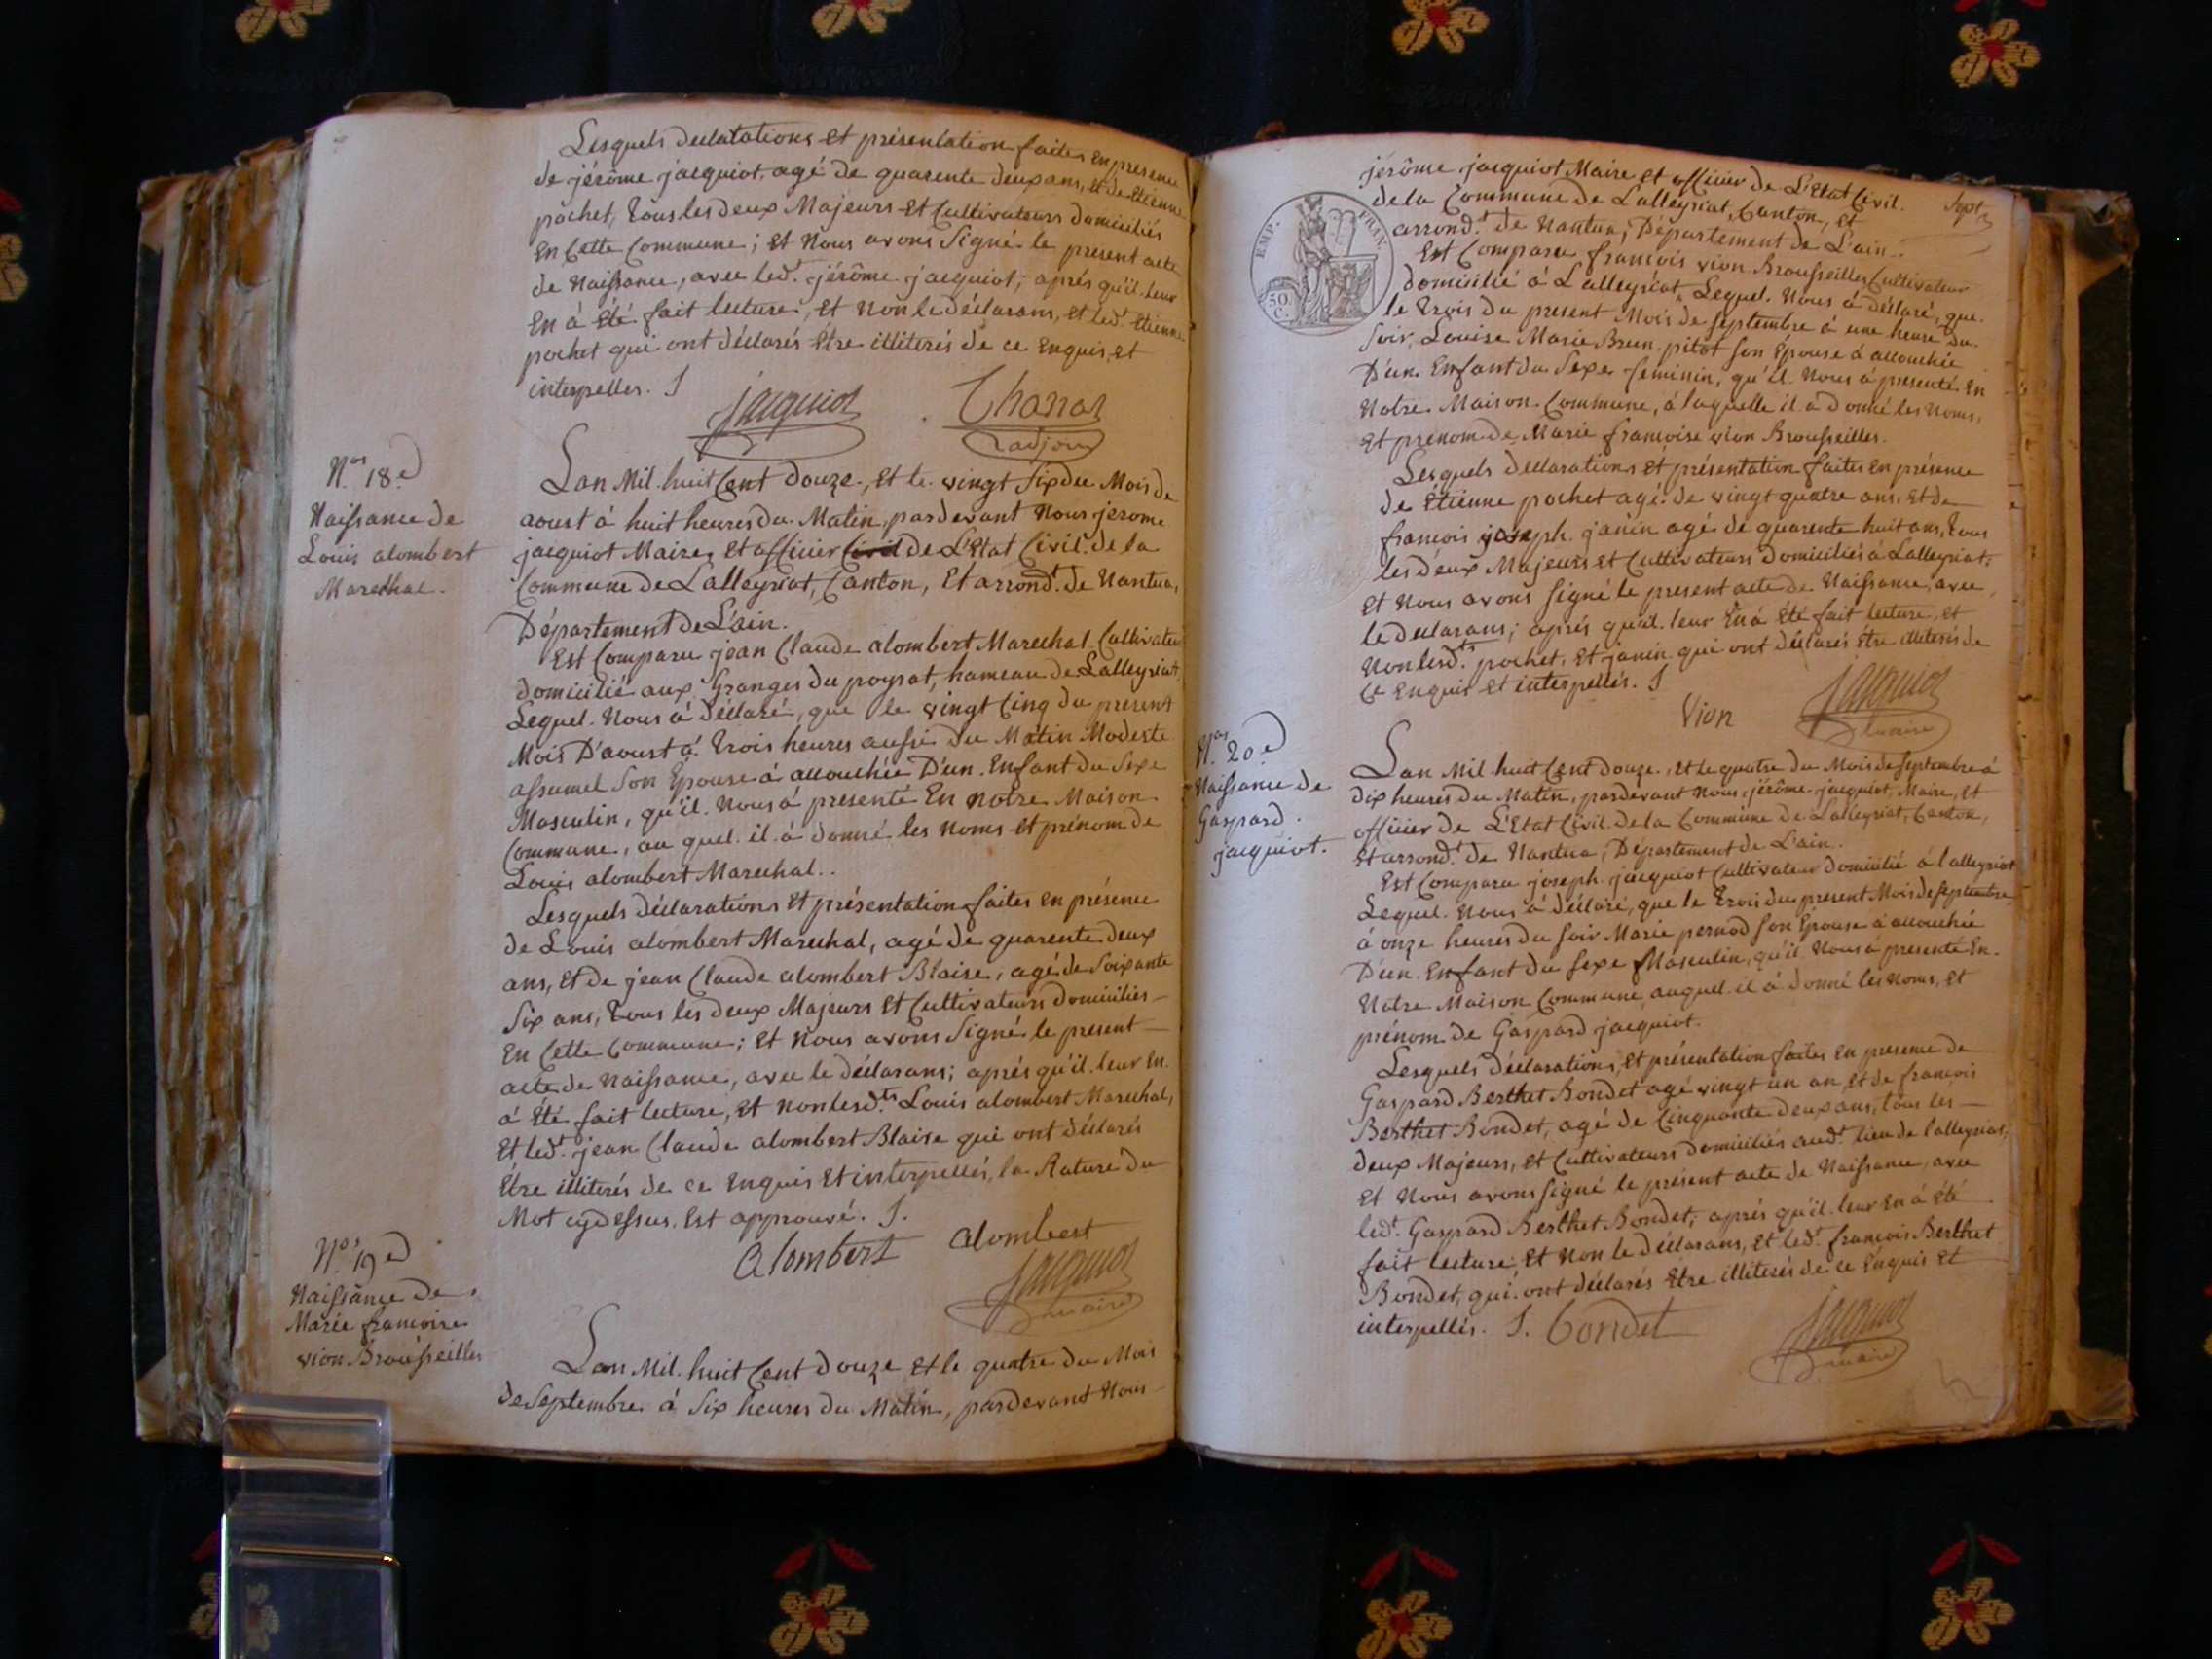 Lesquels declarations et présentation faites en presence
de jérôme jacquiot, agé de quarente deux ans, et de Etienne
pochet, tous les deux Majeurs et Cultivateurs domiciliés
En Cette Commune; et Nous avons Signé le present acte
de Naissance, avec led.t jérôme jacquiot; aprés qu'il leur
En á Eté fait lecture, et Non le déclarans, et led.t Etienne
pochet qui ont déclarés Etre illiterés de ce Enquis, et
interpellés. J
Jacquiot
adjoin
N.os 18.e
Naissance de
Louis alombert
Marechal.
Lan Mil huit Cent douze, et le vingt Six du Mois de
aoust á huit heures du Matin, pardevant Nous jerome
jacquiot Maire, et officier Civil de L'Etat Civil de la
Commune de Lalleyriat, Canton, et arrond.t de Nantua,
Département de L'ain.
Est Comparu jean Claude alombert Marechal Cultivateur
domicilié aux Granges du poysat, hameau de Lalleyriat,
Lequel Nous á déclaré, que le vingt Cinq du present
Mois D'aoust á trois heures aussi du Matin Modeste
assumel Son Epouse á accouchée D'un Enfant du Sexe
Masculin, qu'il Nous á presenté En notre Maison
Commune, au quel il á donné les Noms et prénom de
Louis alombert Marechal..
Lesquels déclarations et présentation faites en présence
de Louis alombert Marechal, agé de quarente deux
ans, et de jean Claude alombert Blaise, agé de Soixante
Six ans, tous les deux Majeurs et Cultivateurs domiciliés
En Cette Commune; et Nous avons Signé le present
acte de Naissance, avec le déclarans; aprés qu'il leur En
á Eté fait lecture, et Non lesd.ts Louis alombert Marechal,
et led.t jean Claude alombert Blaise qui ont déclarés
Etre illiterés de ce Enquis et interpellés, la Rature du
Mot cydessus Est approuvé. J.
alombert
alombert
Jacquiot
maire
N.os 19.e
Naissance de
Marie francoise
vion Brousseilles
Lan Mil huit Cent douze et le quatre du Mois
de Septembre á Six heures du Matin, pardevant Nous
Sept
EMP. FRAN.
50 C.
jérôme jacquiot Maire et officier de L'Etat Civil
de la Commune de Lalleyriat, Canton, et
arrond.t de Nantua, Département de L'ain.
Est Comparu francois vion Brousseilles Cultivateur
domicilié á Lalleyriat, Lequel Nous á déclaré, que
le trois du present Mois de septembre á une heure du
Soir, Louise Marie Brun pitot son Epouse á accouchée
D'un Enfant du Sexe feminin, qu'il Nous á presenté En
Notre Maison Commune, á laquelle il á donné les Noms,
et prenom de Marie francoise vion Brousseilles.
Lesquels declarations et présentation faites en présence
de Etienne pochet agé de vingt quatre ans, et de
francois joseph janin agé de quarente huit ans, tous
les deux Majeurs et Cultivateurs domiciliés á Lalleyriat;
et Nous avons signé le present acte de Naissance, avec
le declarans; aprés qu'il leur En á Eté fait lecture, et
Non lesd.ts pochet, et janin qui ont déclarés Etre illiterés de
Ce Enquis et interpellés. J
Vion
Jacquiot
maire
N.os 20.e
Naissance de
Gaspard
jacquiot.
Lan Mil huit Cent douze, et le quatre du Mois de septembre á
dix heures du Matin, pardevant Nous jérôme jacquiot, Maire, et
officier de L'Etat Civil de la Commune de Lalleyriat, Canton,
et arrond.t de Nantua, Département de L'ain.
Est Comparu joseph jacquiot Cultivateur domicilié á lalleyriat
Lequel Nous á déclaré, que le trois du present Mois de septembre,
á onze heures du soir Marie pernod son Epouse á accouchée
D'un Enfant du sexe Masculin, qu'il Nous á presenté En
Notre Maison Commune, auquel il á donné les Noms, et
prénom de Gaspard jacquiot.
Lesquels déclarations, et présentation faites En presence de
Gaspard Berthet Bondet agé vingt un an, et de francois
Berthet Bondet, agé de Cinquante deux ans, tous les
deux Majeurs, et Cultivateurs domiciliés aud.t lieu de lalleyriat;
et Nous avons signé le présent acte de Naissance, avec
led.t Gaspard Berthet Bondet; aprés qu'il leur En á Eté
fait lecture, et Non le déclarans, et led.t francois Berthet
Bondet, qui ont déclarés Etre illiterés de ce Enquis et
interpellés. J. bondet
Jacquiot
maire